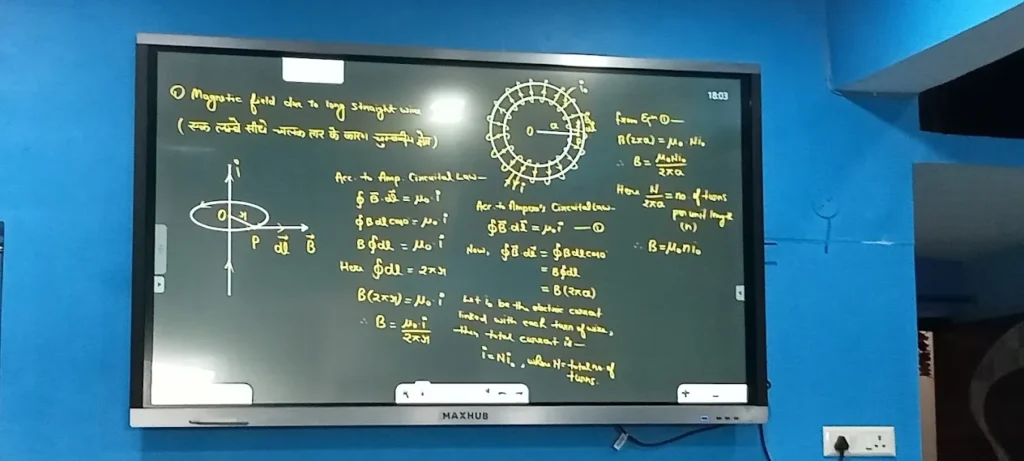 ① Magnetic field due to long straight wire
(एक लम्बे सीधे चालक तार के कारण चुम्बकीय क्षेत्र)
i
O
r
P
dl
B
Acc. to Amp. Circuital Law—
∮B⃗·dl⃗ = μ₀ i
∮Bdlcoso = μ₀ i
B∮dl = μ₀ i
Here ∮dl = 2πr
B(2πr) = μ₀ i
∴ B = μ₀ i / 2πr
i₀
O
a
dl
i
Acc. to Ampere's Circuital Law—
∮B⃗ dl⃗ = μ₀i —①
Now, ∮B⃗·dl⃗ = ∮Bdlcoso
= B∮dl
= B(2πa)
Let i₀ be the electric current
linked with each turn of wire,
then total current is—
i = Ni₀, where N = total no. of
turns.
18:03
from Eqⁿ ①—
B(2πa) = μ₀ Ni₀
∴ B = μ₀Ni₀ / 2πa
Here N / 2πa = no of turns
per unit length
(n)
∴ B = μ₀ni₀
MAXHUB